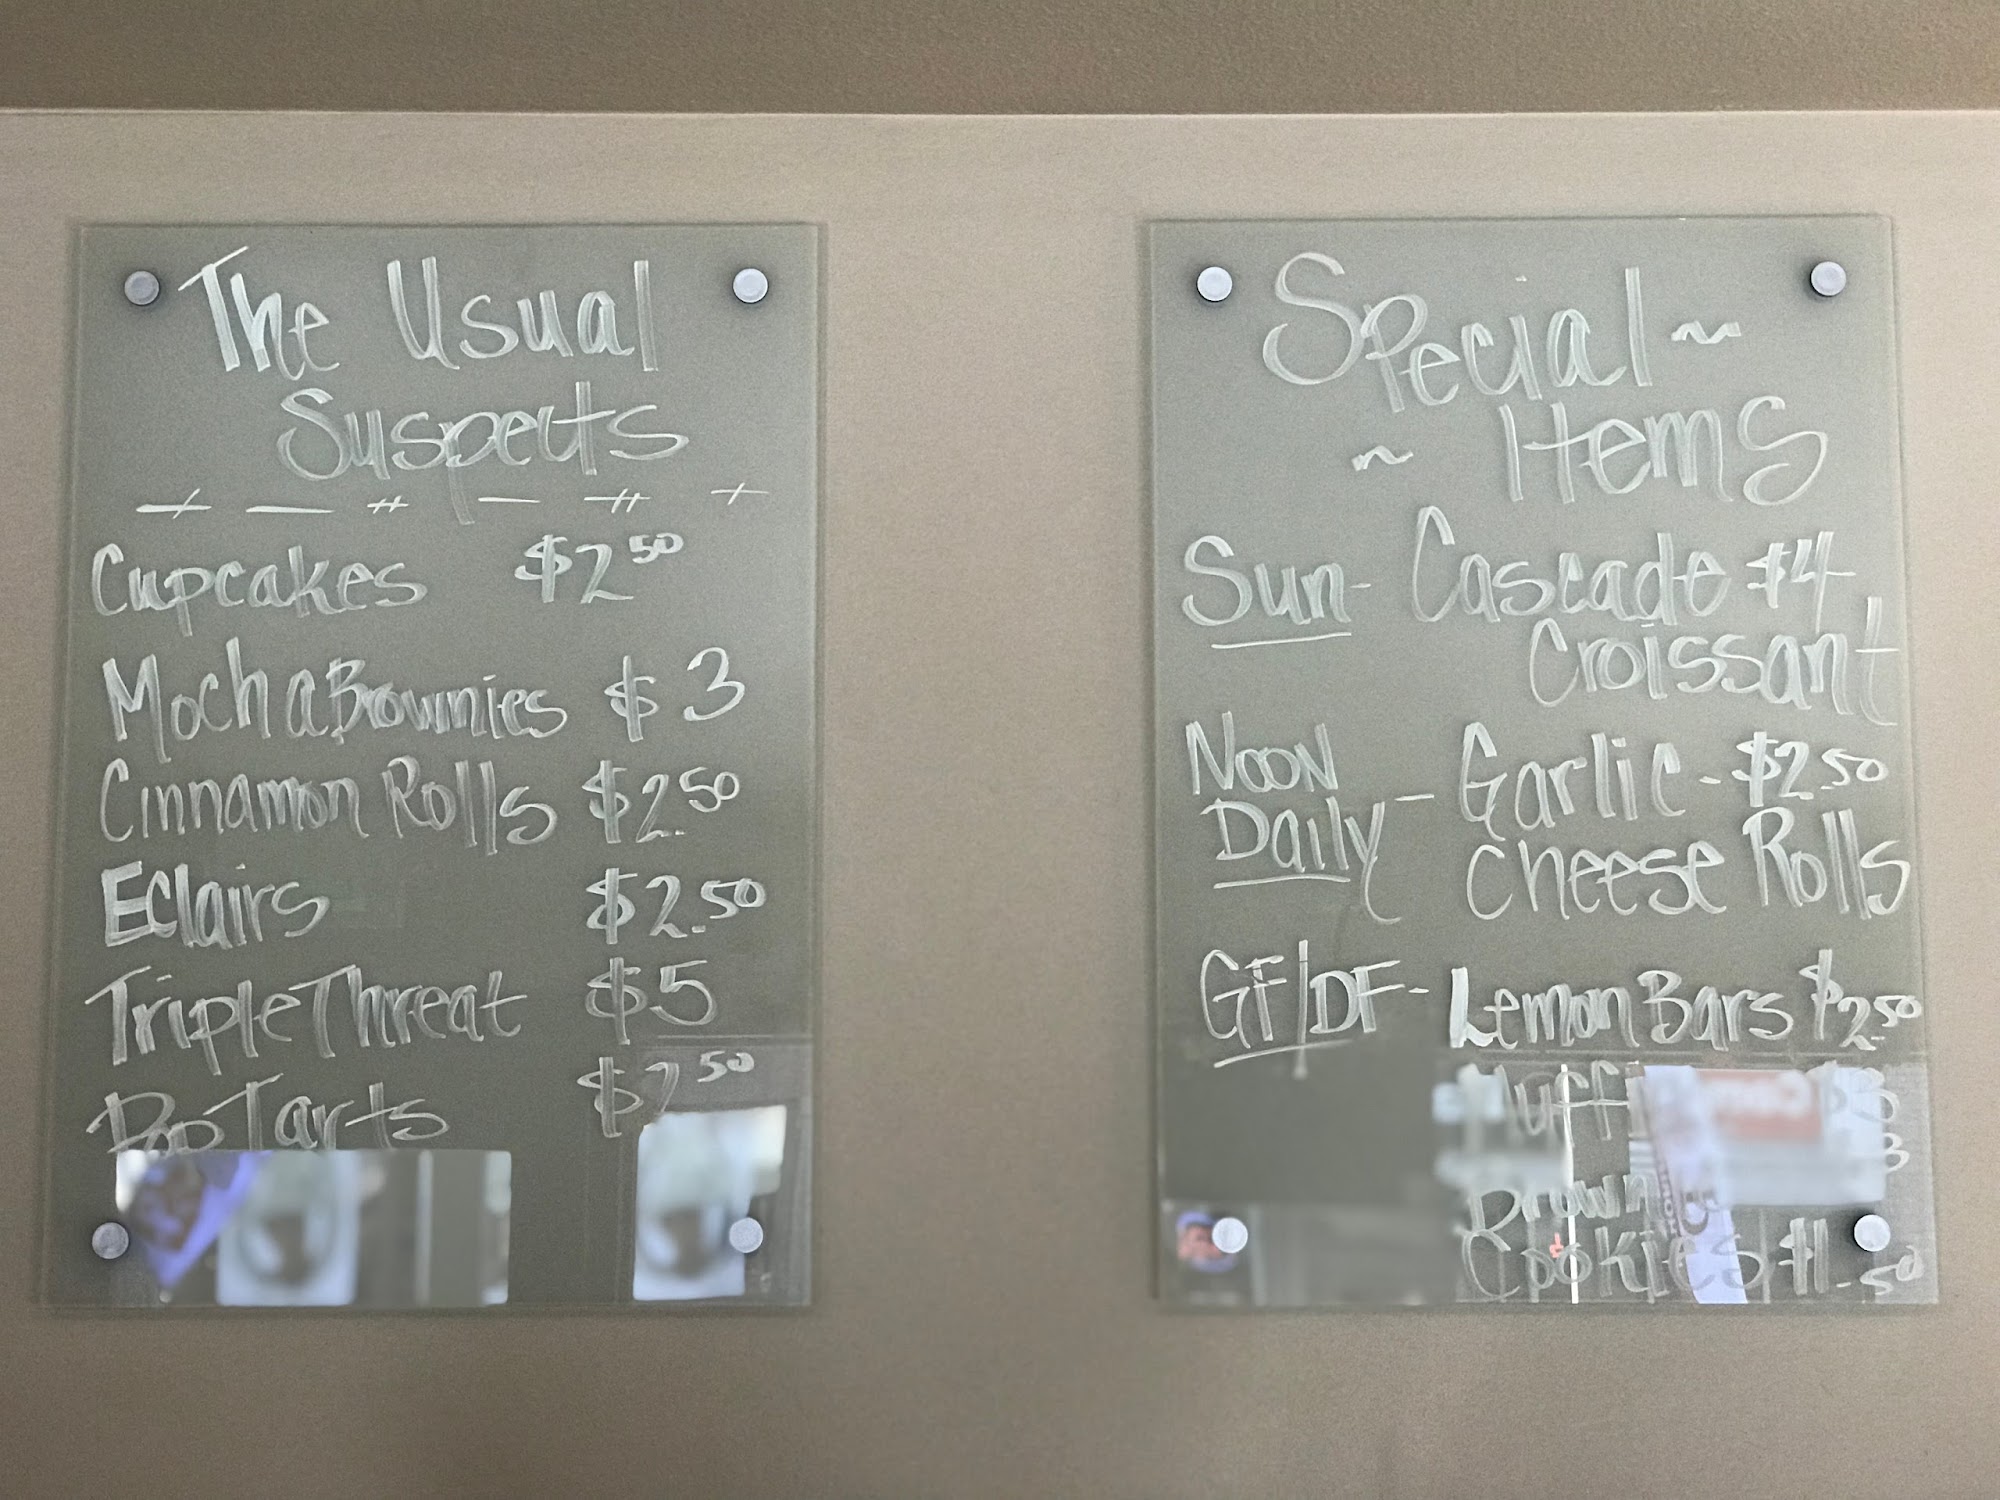 The Usual
Suspects
Cupcakes $2.50
Mocha Brownies $3
Cinnamon Rolls $2.50
Eclairs $2.50
Triple Threat $5
Pop Tarts $2.50
Special ~
~ Items
Sun- Cascade $4
Croissant
Noon
Daily - Garlic - $2.50
Cheese Rolls
GF/DF- Lemon Bars $2.50
$3
3
Cookies $1.50